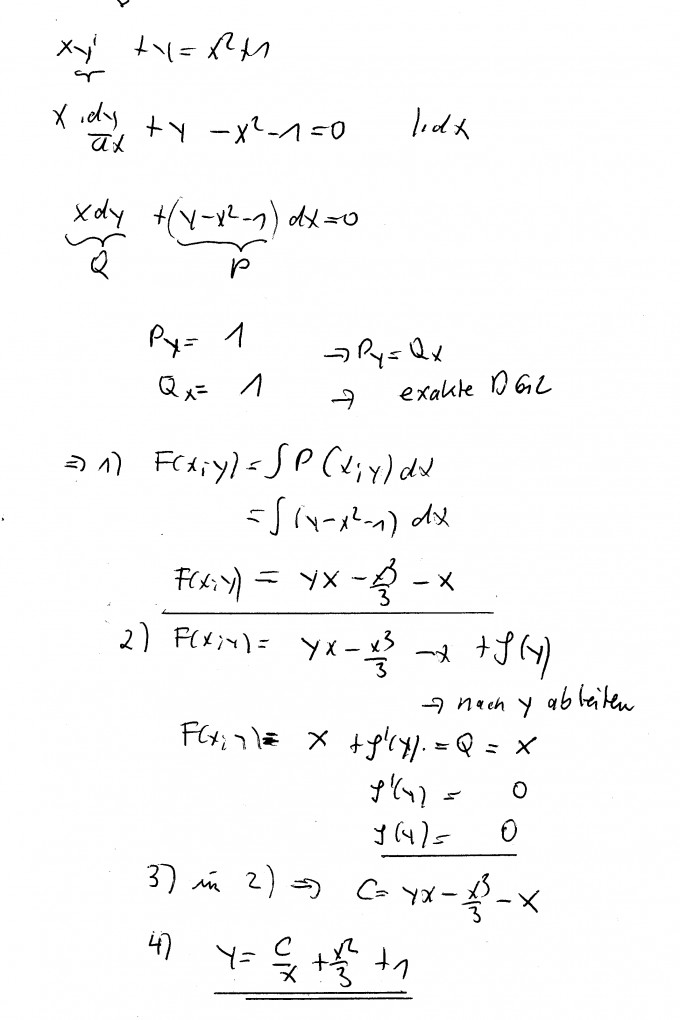 xy' + y = x² + 1
x · dy/dx + y - x² - 1 = 0 |·dx
x dy + (y - x² - 1) dx = 0
Q P
Py = 1 → Py = Qx
Qx = 1 → exakte DGL
⇒ 1) F(x;y) = ∫ P (x;y) dx
= ∫ (y - x² - 1) dx
F(x;y) = yx - x³/3 - x
2) F(x;y) = yx - x³/3 - x + f(y)
→ nach y ableiten
F(x;y) = x + f'(y) = Q = x
f'(y) = 0
f(y) = 0
3) in 2) ⇒ C = yx - x³/3 - x
4) y = C/x + x²/3 + 1